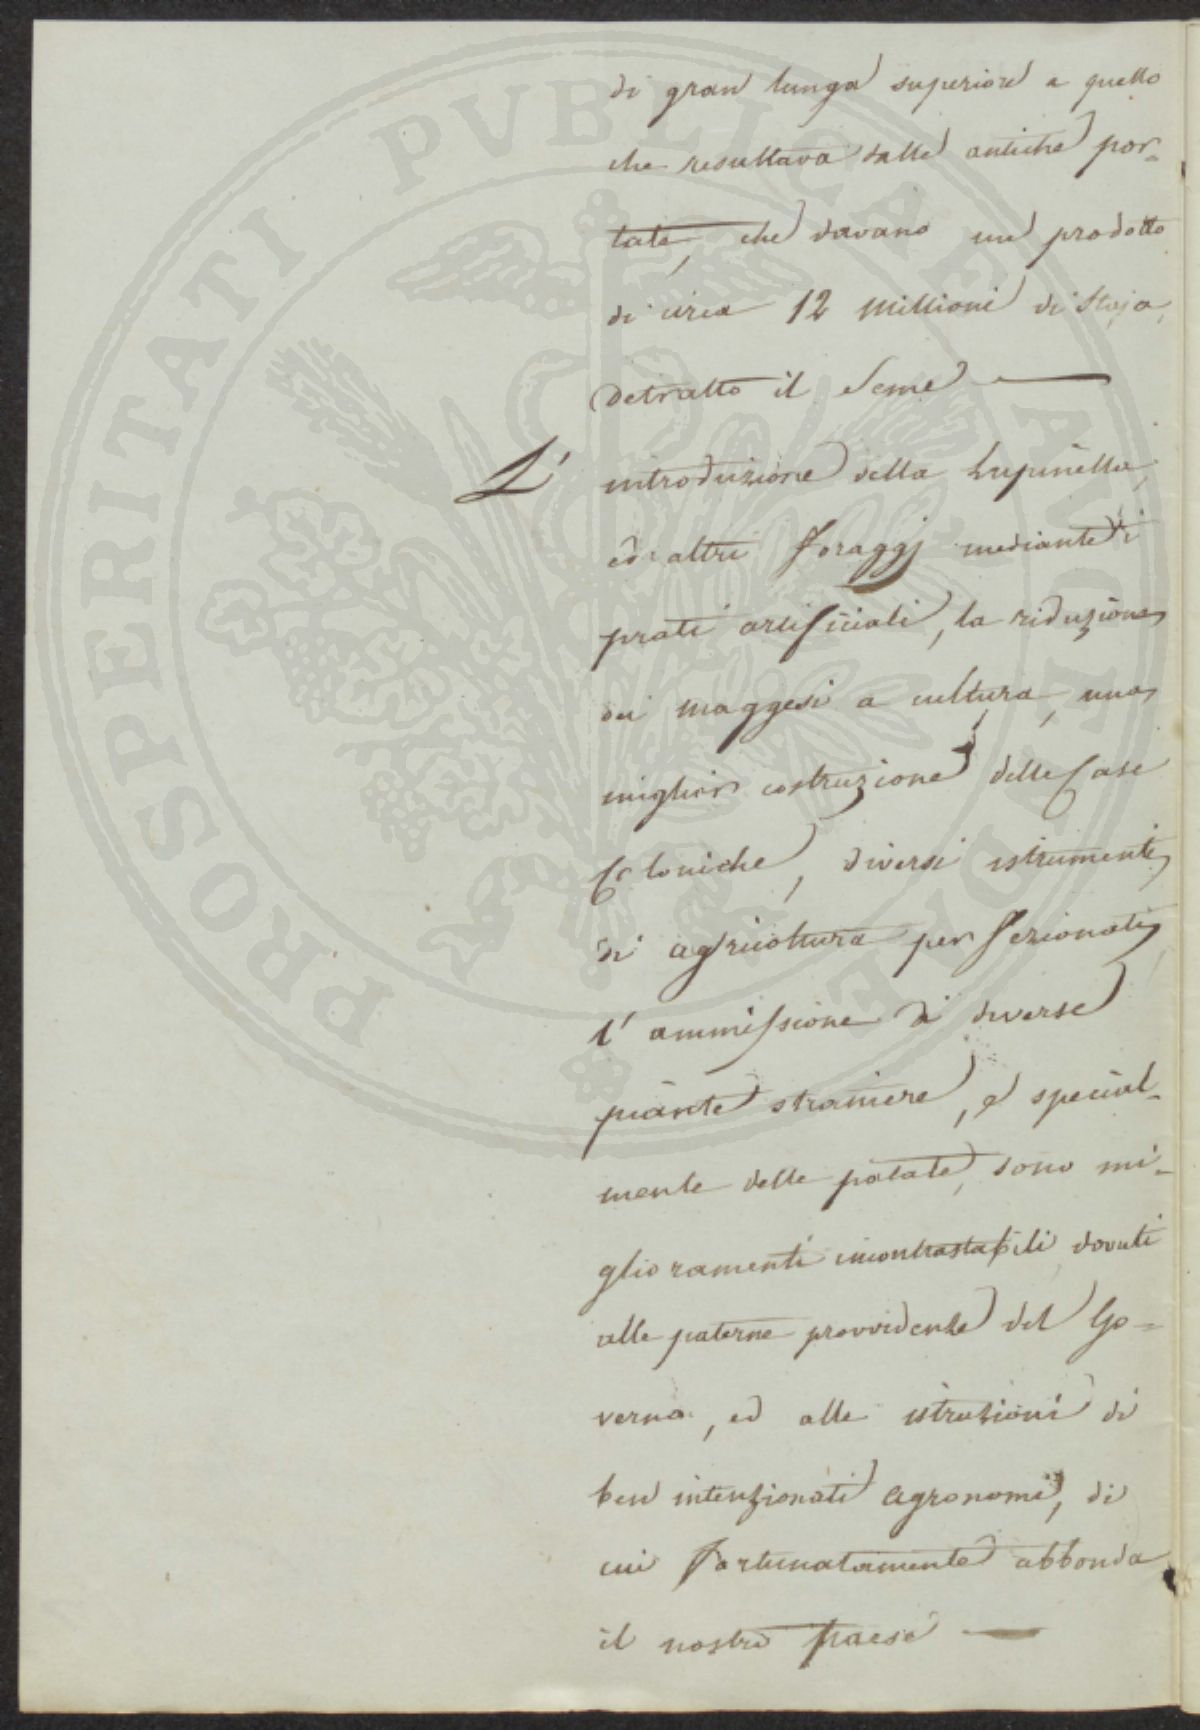 PROSPERITATI PVBLICAE AVGENDAE
di gran lunga superiore a quello
che resultava dalle antiche por-
tate, che davano un prodotto
di circa 12 Millioni di Staja,
detratto il Seme —
L' introduzione della Lupinella,
ed altri foraggj mediante i
prati artificiali, la riduzione
dei maggesi a cultura, una
miglior costruzione delle Case
Coloniche, diversi istrumenti
di agricoltura perfezionati,
l' ammissione di diverse
piante straniere, e special-
mente delle patate, sono mi-
glioramenti incontrastabili dovuti
alle paterne provvidenze del Go=
verno, ed alle istruzioni di
ben intenzionati Agronomi, di
cui fortunatamente abbonda
il nostro paese —